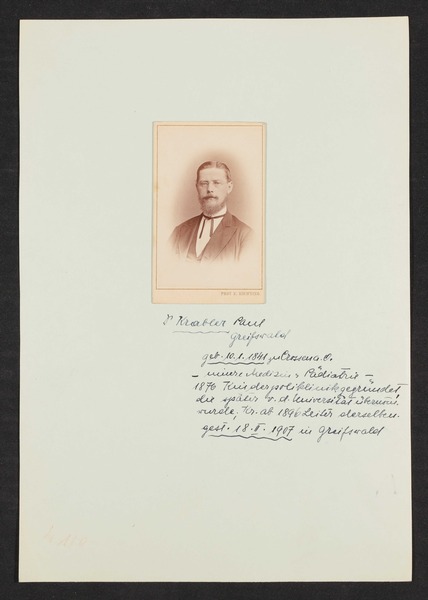 Krabler Paul
Greifswald
geb. 10.1.1841 zu Crossen a. O.
– innere Medizin u Pädiatrie –
1876 Kinderpoliklinik gegründet
die später v. d. Universität übernom.
wurde, Kr. ab 1896 Leiter derselben.
gest. 18.II. 1907 in Greifswald